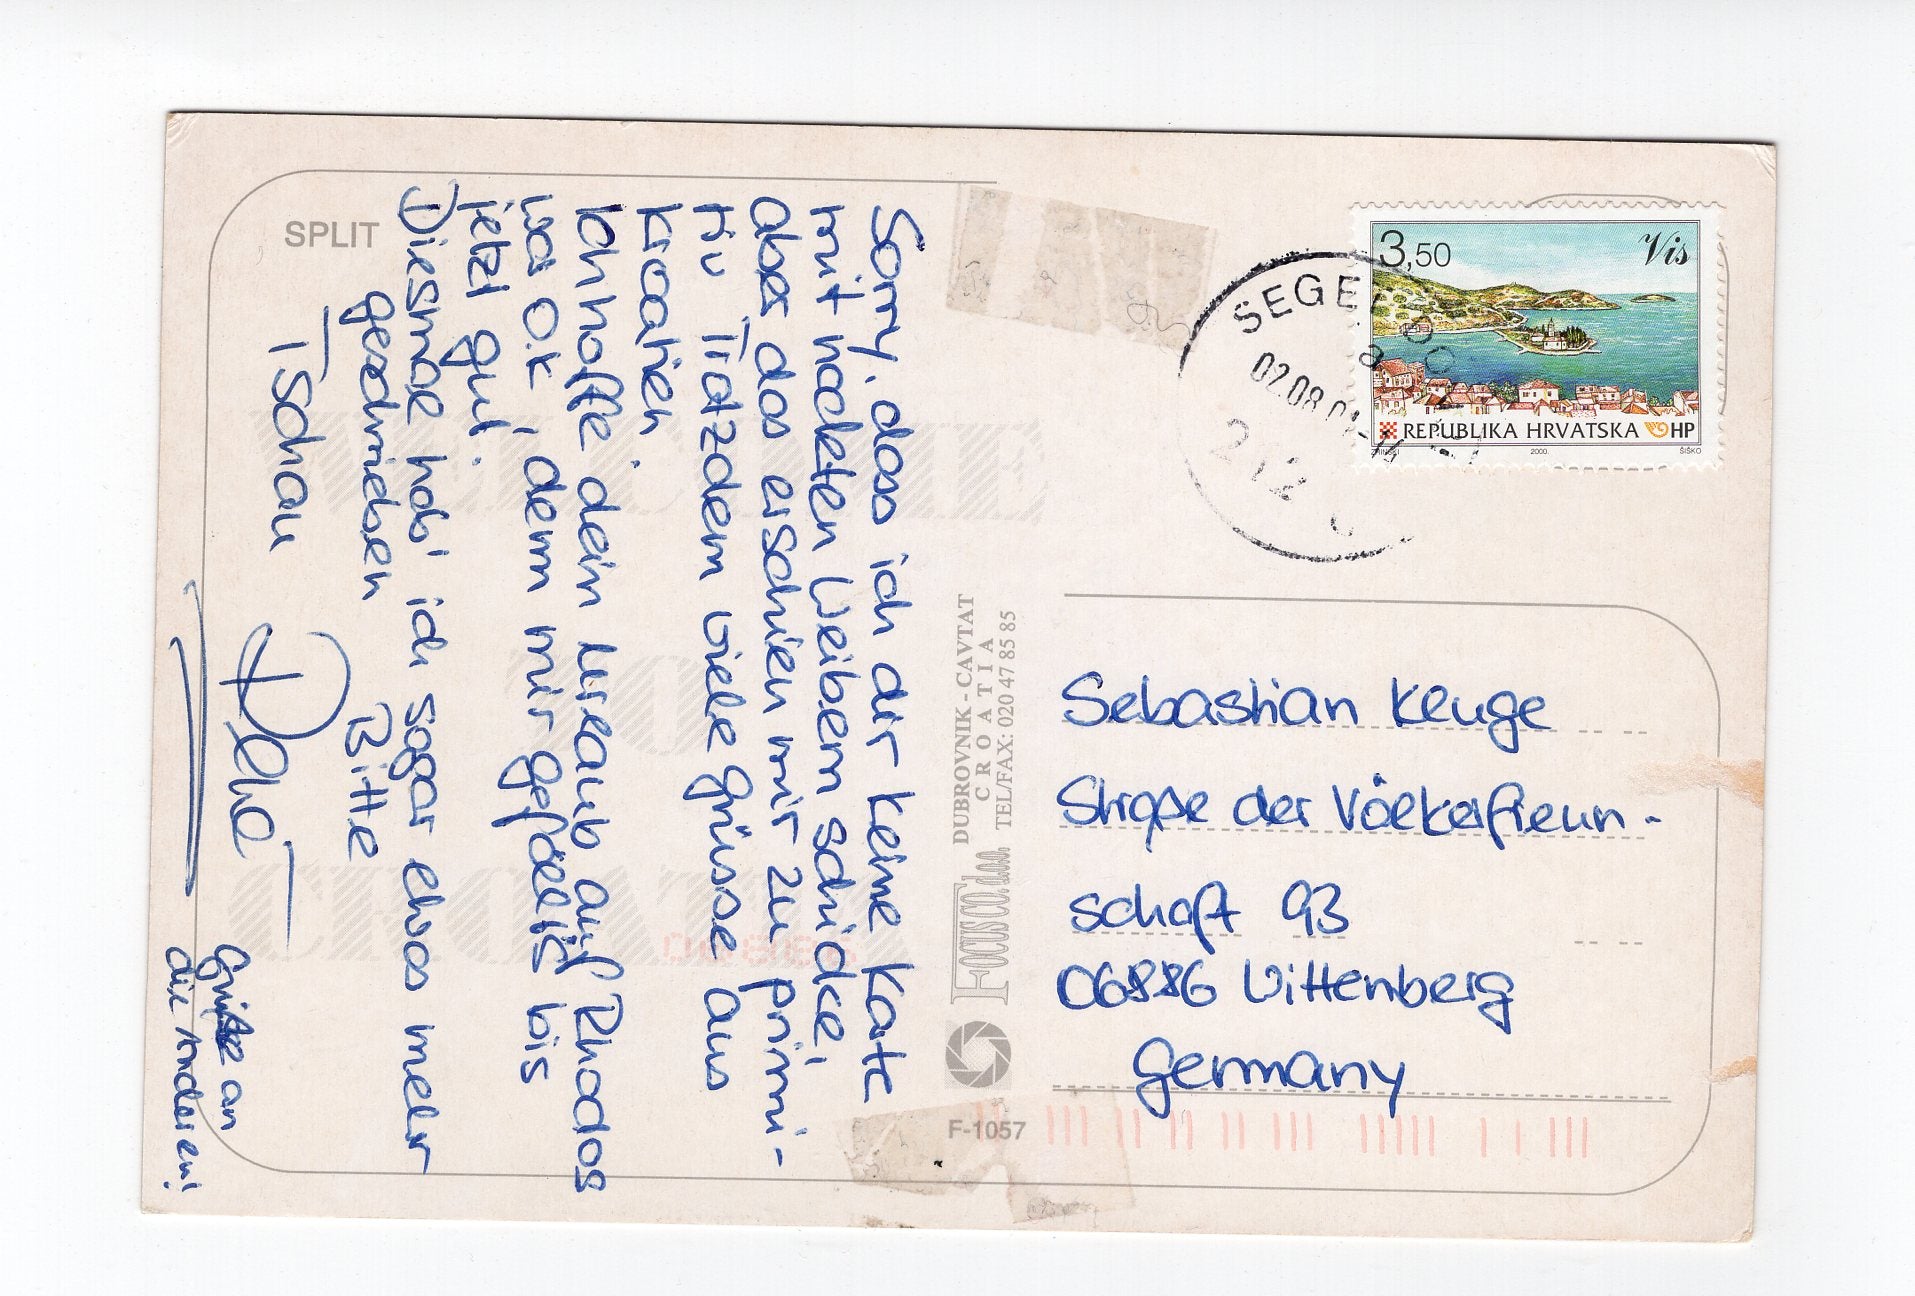 SPLIT
Sorry, dass ich dir keine Karte
mit nackten Weibern schicke,
aber das erschien mir zu primi-
tiv. Trotzdem viele Grüsse aus
Kroatien.
Ich hoffe dein Urlaub auf Rhodos
war o.k., denn mir gefällts bis
jetzt gut.
Diesmal hab' ich sogar etwas mehr
geschrieben Bitte
Tschau
Grüße an
die Anderen!
DUBROVNIK - CAVTAT
CROATIA
TEL/FAX: 020 47 85 85
FOCUS CO d.o.o.
F-1057
WELCOME
TO
CROATIA
3,50 Vis
REPUBLIKA HRVATSKA HP
ZRINSKI 2000. ŠIŠKO
02.08.01-14
Sebastian Kluge
Straße der Völkerfreun-
schaft 93
06886 Wittenberg
Germany